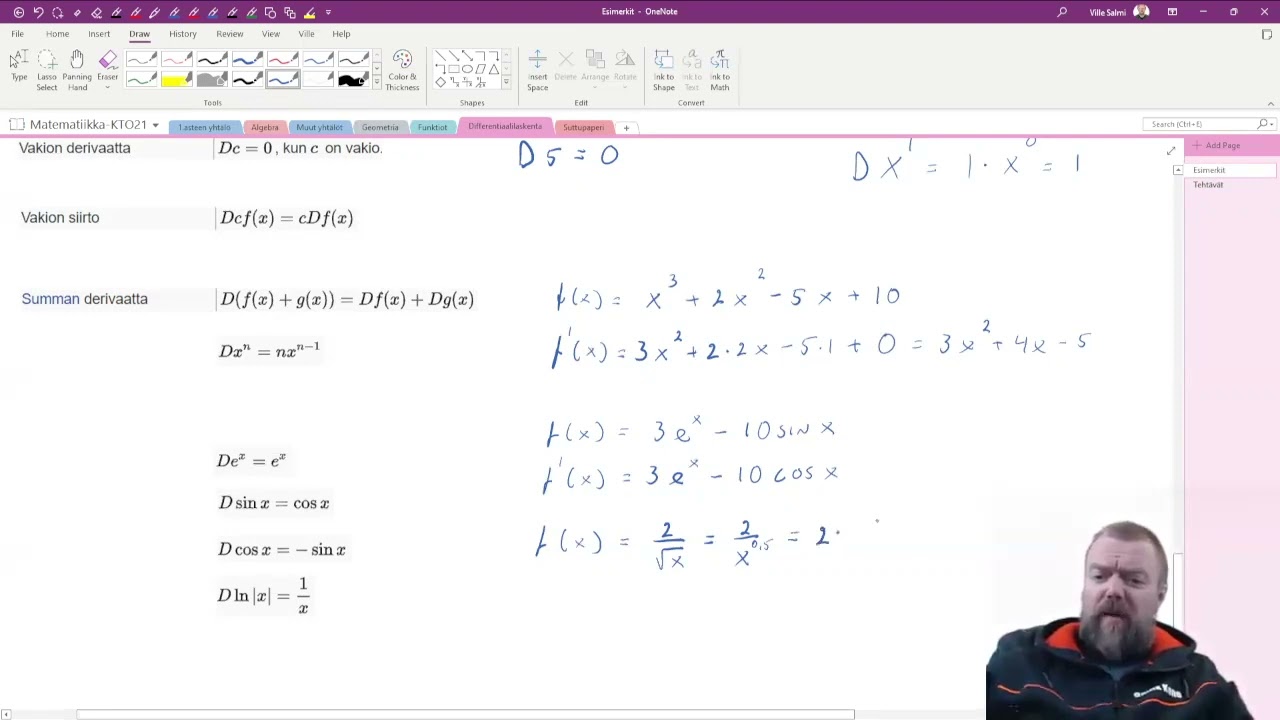 Esimerkit - OneNote
Ville Salmi
File Home Insert Draw History Review View Ville Help
Type
Lasso Select
Panning Hand
Eraser
Color & Thickness
Insert Space
Delete
Arrange
Rotate
Ink to Shape
Ink to Text
Ink to Math
Tools
Shapes
Edit
Convert
Matematiikka-KTO21
1.asteen yhtälö
Algebra
Muut yhtälöt
Geometria
Funktiot
Differentiaalilaskenta
Suttupaperi
+
Search (Ctrl+E)
Add Page
Esimerkit
Tehtävät
Vakion derivaatta Dc = 0 , kun c on vakio. D 5 = 0 D x^1 = 1 · x^0 = 1
Vakion siirto Dcf(x) = cDf(x)
Summan derivaatta D(f(x) + g(x)) = Df(x) + Dg(x) f(x) = x^3 + 2x^2 - 5x + 10
Dx^n = nx^{n-1} f'(x) = 3x^2 + 2·2x - 5·1 + 0 = 3x^2 + 4x - 5
f(x) = 3e^x - 10 sin x
De^x = e^x f'(x) = 3e^x - 10 cos x
D sin x = cos x
D cos x = − sin x f(x) = 2/√x = 2/x^{0,5} = 2·
D ln |x| = 1/x